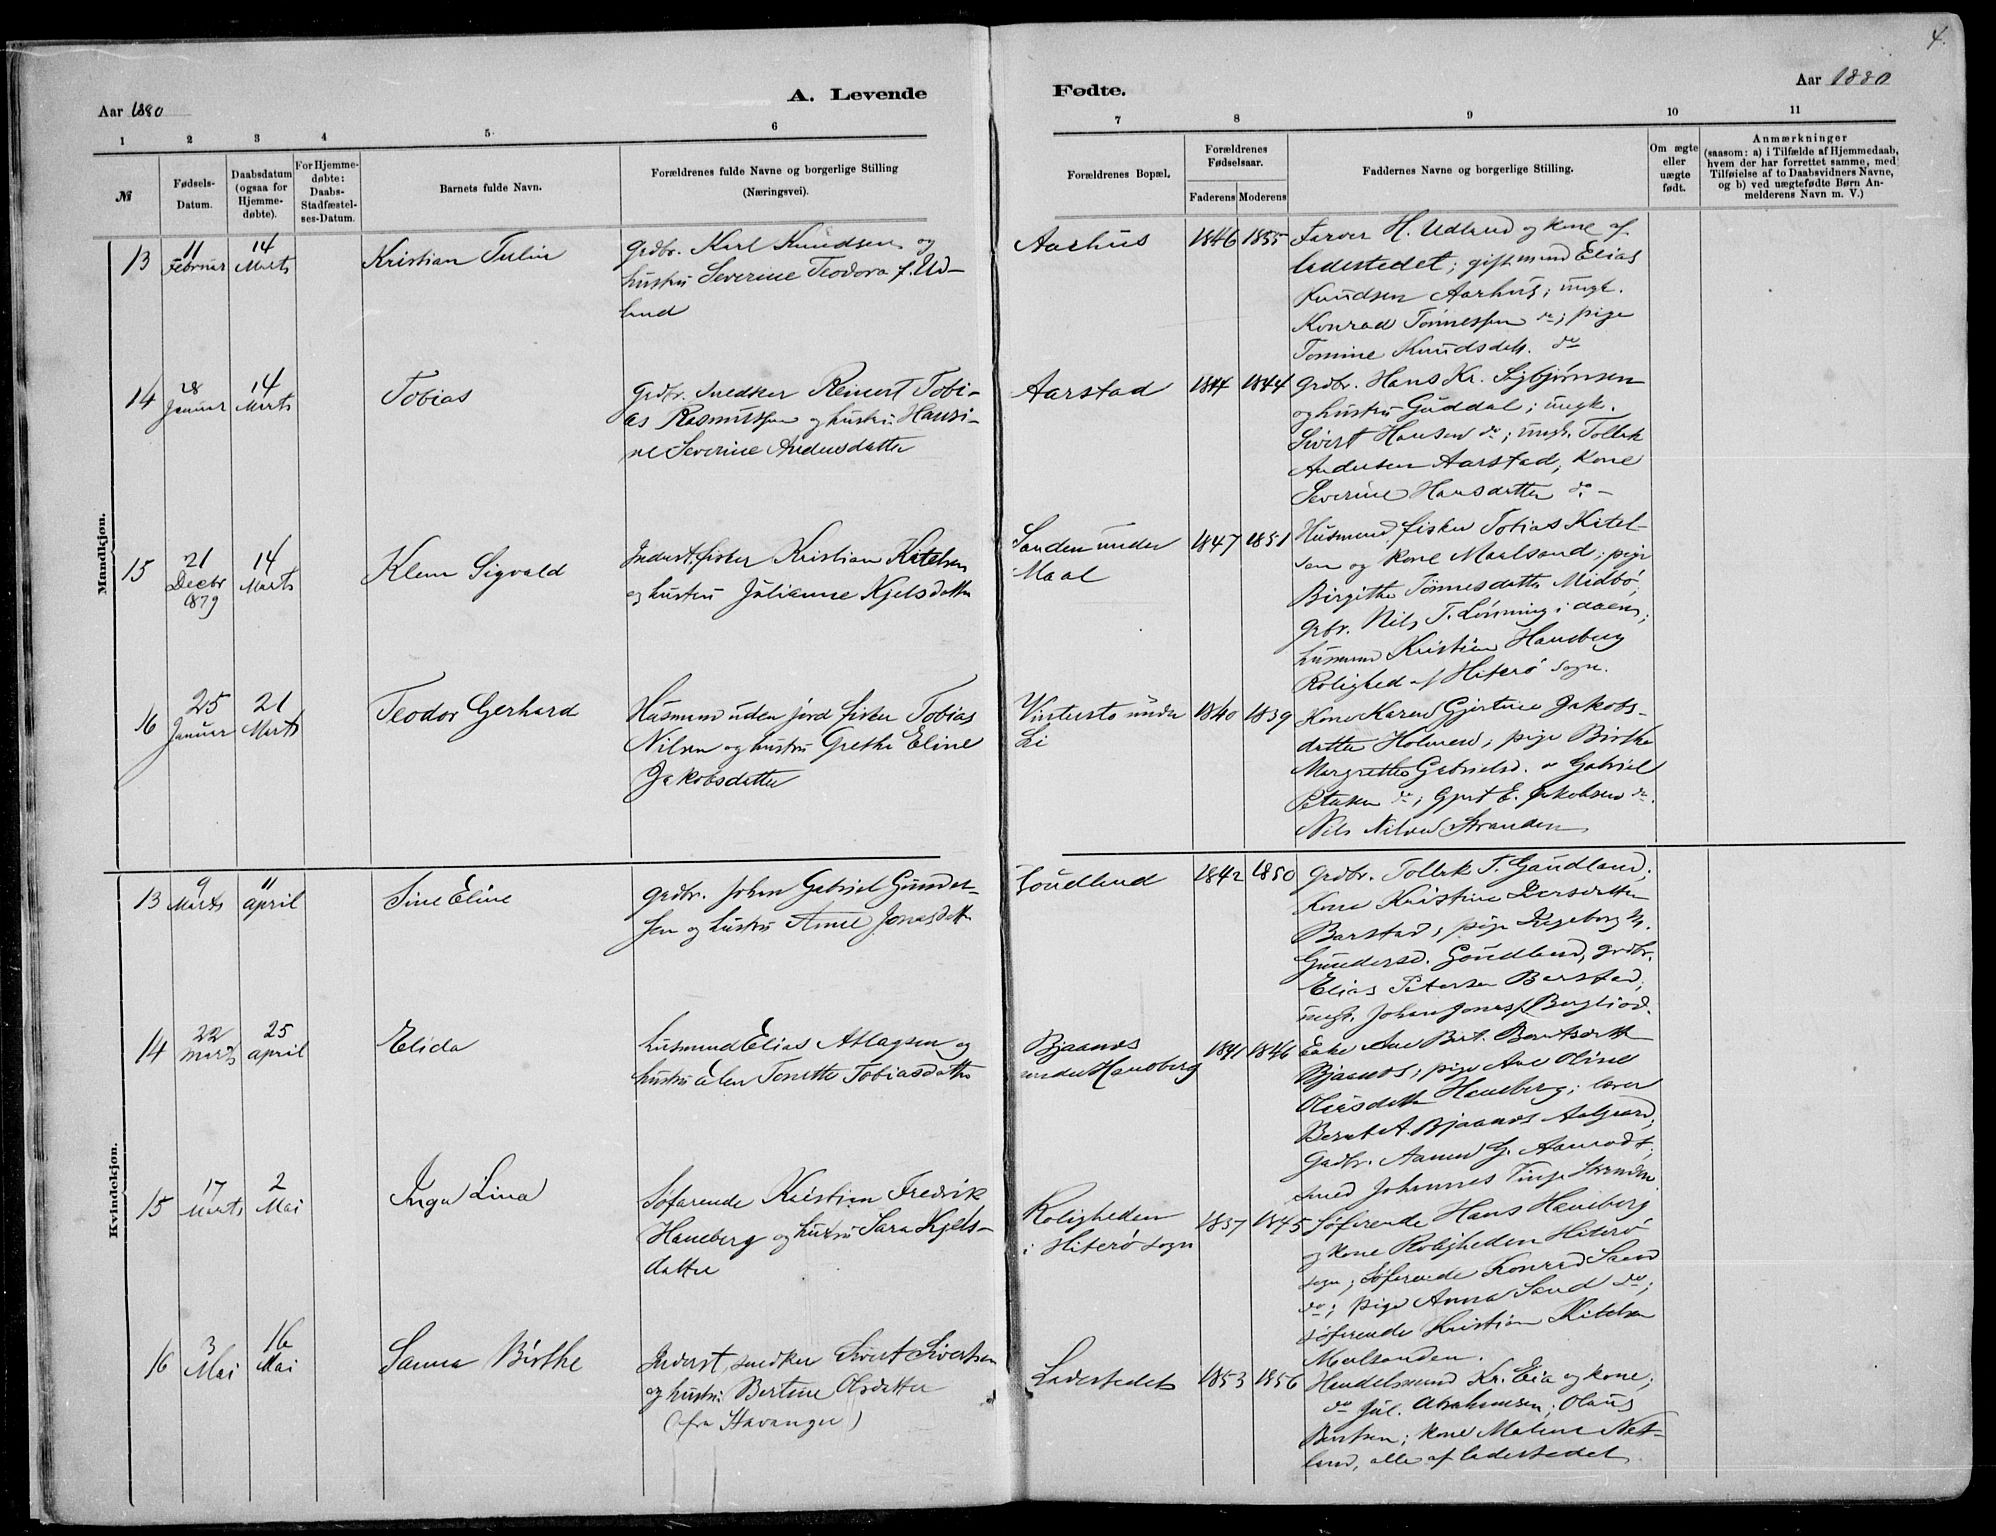 4.
Aar 1880
A. Levende
Fødte.
Aar 1880
1 2 3 4 5. 6
7 8 9 10 11
№
Fødsels-
Datum.
Daabsdatum
(ogsaa for
Hjemme-
døbte).
For Hjemme-
døbte:
Daabs-
Stadfæstel-
ses-Datum.
Barnets fulde Navn.
Forældrenes fulde Navne og borgerlige Stilling
(Næringsvei).
Forældrenes Bopæl.
Forældrenes
Fødselsaar.
Faderens
Moderens
Faddernes Navne og borgerlige Stilling.
Om ægte
eller
uægte
født.
Anmærkninger
(saasom: a) i Tilfælde af Hjemmedaab,
hvem der har forrettet samme, med
Tilføielse af to Daabsvidners Navne,
og b) ved uægtefødte Børn An-
melderens Navn m. V.)
Mandkjøn.
13
11
Februar
14
Marts
Kristian Tulin
grdbr. Karl Knudsen og
hustru Severine Teodora f. Ud-
land
Aarhus
1846
1855
Farver H. Udland og kone af
ladestedet; gift mand Elias
Knudsen Aarhus; ungk.
Konrad Tønnessen do; pige
Tomine Knudsdatt. do
14
28
Januar
14
Marts
Tobias
grdbr. snedker Reinert Tobi-
as Rasmussen og hustru Hansi-
ne Severine Andersdatter
Aarstad
1844
1844
grdbr. Hans Kr. Sigbjørnsen
og hustru Guddal; ungk.
Sivert Hansen do; ungk. Tollak
Andersen Aarstad; kone
Severine Hansdatter do -
15
21
Decbr
1879
14
Marts
Klem Sigvald
Inderst. fisker Kristian Kitelsen
og hustru Julianne Kjelsdatter
Sanden under
Maal
1847
1851
Husmand, fisker Tobias Kitel-
sen og kone Maalsand; pige
Birgithe Tønnesdatter Midbø;
grbr. Nils T. Lønning i
husmand Kristian Haneberg
Rolighed af Hiterø sogn.
16
25
Januar
21
Marts
Teodor Gerhard
Husmand uden jord fisker Tobias
Nilsen og hustru Grethe Eline
Jakobsdatter
under
Li
1840
1839
Kone Karen Gjertine Jakobs-
datter Holmen; pige Birthe
Margrethe Gabrielsd. Gabriel
do; Gjert E. Jakobsen do.
Nils Nilsen Stranden
Kvindekjøn.
13
9
Marts
11
april
Sine Eline
grdbr. Johan Gabriel Gunder-
sen og hustru Anne Jonasdatter
Goudland
1842
1850
grdbr. Tollak T. Goudland;
Kone Kristine
Barstad; pige Ingeborg
Gundersd. Goudland, grdbr.
Elias Petersen Barstad;
ungk. Johan Jonass.
14
22
Marts
25
april
Elida
husmand Elias Aslagsen og
hustru Elen Tonette Tobiasdatter
Bjaanes
under Haneberg
1841
1846
Enke Ane Bert. Berntsdatter
Bjaanes; pige Ane Oline
Olausdatter Haneberg; lærer
Bernt A. Bjaanes Aalgaard;
Gadbr. Aanen G. Aamodt;
smed Johannes Stranden.
15
17
Marts
2
Mai
Inga Lina
Søfarende Kristian Fredrik
Haneberg og hustru Sara Kjels-
datter
Roligheden
i Hiterø sogn
1857
1845
Søfarende Hans Haneberg
og kone Roligheden Hiterø
sogn; Søfarende Konrad Sand
do; pige Anna Sand do;
søfarende Kristian Kitelsen
Maalsanden.
16
3
Mai
16
Mai
Sanna Birthe
Inderst, snedker Sivert Sivertsen
og hustru Bertine Olsdatter
(fra Stavanger)
Ladestedet
1853
1856
Handelsmand Kr. Eia og kone;
do Jul. Abrahamsen; Olaus
Berntsen; kone Maline Net-
land, alle af ladestedet